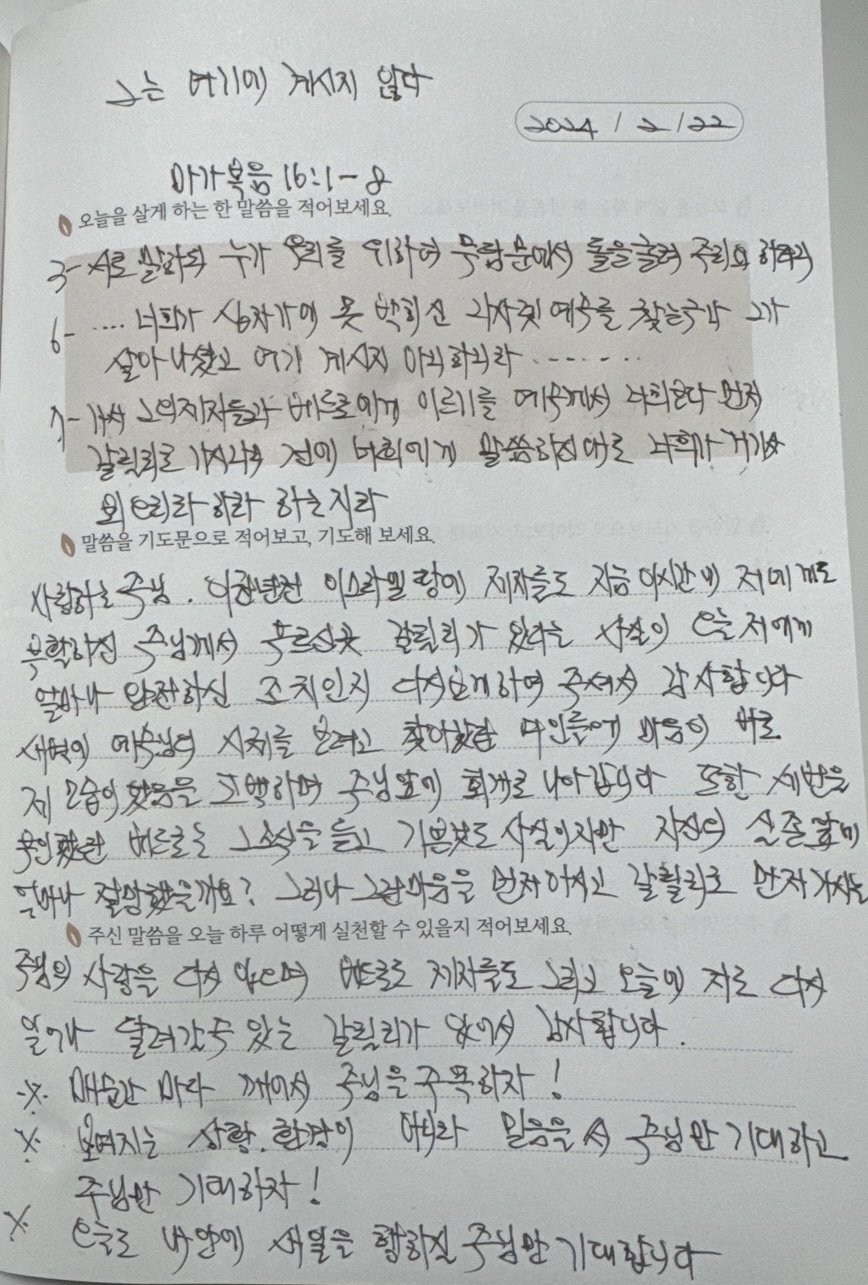 그는 여기에 계시지 않다
2024 / 2 / 22
마가복음 16:1-8
오늘을 살게 하는 한 말씀을 적어보세요.
3- 서로 말하되 누가 우리를 위하여 무덤문에서 돌을 굴려 주리요 하더니
6- .... 너희가 십자가에 못 박히신 나사렛 예수를 찾는구나 그가
살아나셨고 여기 계시지 아니하니라 .......
7- 가서 그의 제자들과 베드로에게 이르기를 예수께서 너희보다 먼저
갈릴리로 가시나니 전에 너희에게 말씀하신 대로 너희가 거기서
뵈오리라 하라 하는지라
말씀을 기도문으로 적어보고, 기도해 보세요.
사랑하는 주님. 이천년전 이스라엘 땅에 제자들도 지금 이시간에 저에게도
부활하신 주님께서 부르신곳 갈릴리가 있다는 사실이 오늘 저에게
얼마나 완전하신 조치인지 다시보게하여 주셔서 감사합니다
새벽에 예수님의 시체를 보려고 찾아갔던 여인들에 마음이 바로
제 모습이었음을 고백하며 주님앞에 회개로 나아갑니다 또한 세번을
부인했던 베드로는 그소식을 듣고 기쁜보도 사실이지만 자신의 실존앞에
얼마나 절망했을까요? 그러나 그런마음을 먼저아시고 갈릴리로 먼저가시는
주신 말씀을 오늘 하루 어떻게 실천할 수 있을지 적어보세요.
주님의 사랑을 다시 입으며 베드로도 제자들도 그리고 오늘에 저도 다시
일어나 달려갈수 있는 갈릴리가 있어서 감사합니다.
※ 매순간 마다 깨어서 주님을 주목하자!
※ 보여지는 상황. 환경이 아니라 믿음을 써 주님만 기대하고
주님만 기대하자!
※ 오늘도 내안에 새일을 행하실 주님만 기대합니다